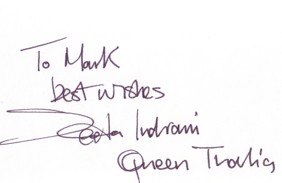 To Mark
best wishes
Leeta Indrani
Queen Thalia